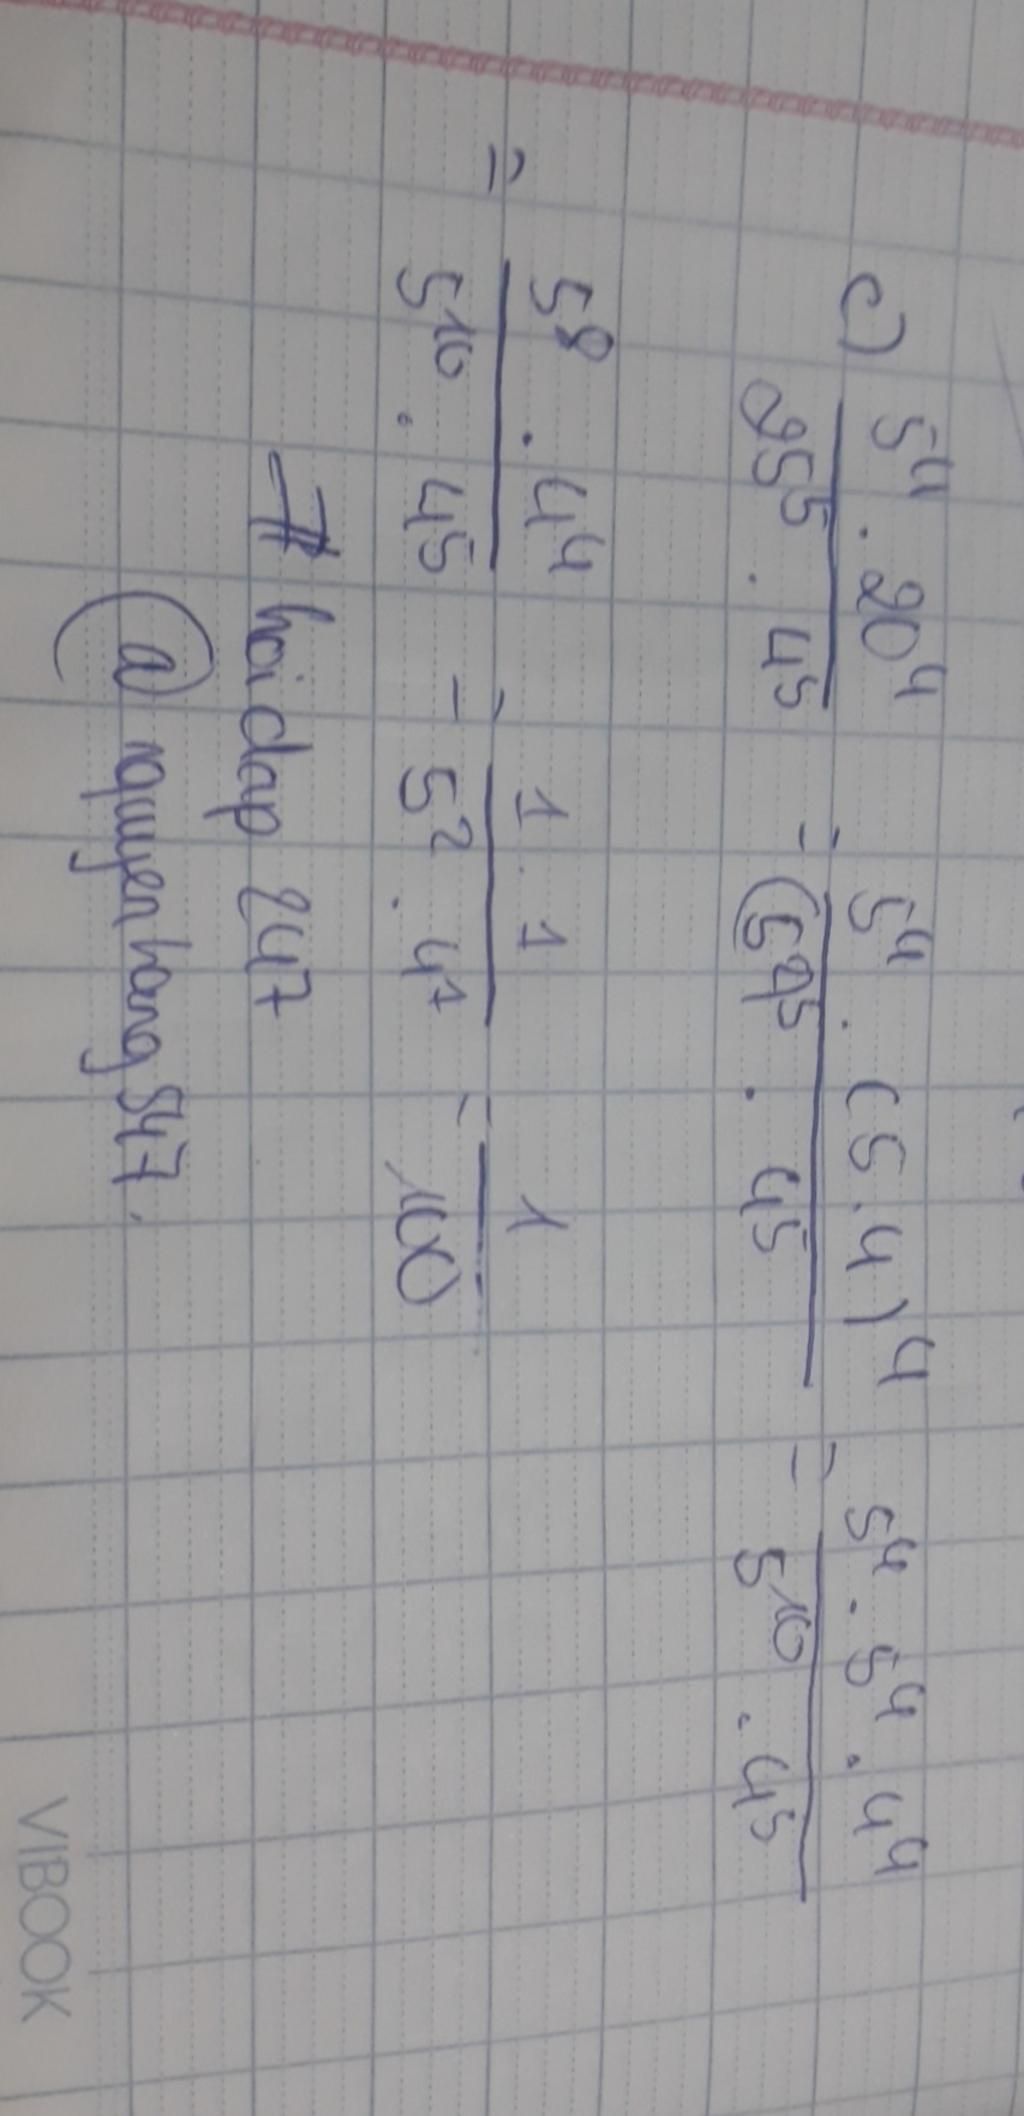 c) 5⁴ . 20⁴ / 25⁵ . 4⁵ = 5⁴ . (5.4)⁴ / (5²)⁵ . 4⁵ = 5⁴ . 5⁴ . 4⁴ / 5¹⁰ . 4⁵
= 5⁸ . 4⁴ / 5¹⁰ . 4⁵ = 1 . 1 / 5² . 4¹ = 1 / 100
# hoidap 247
@ nguyenhang547.
VIBOOK